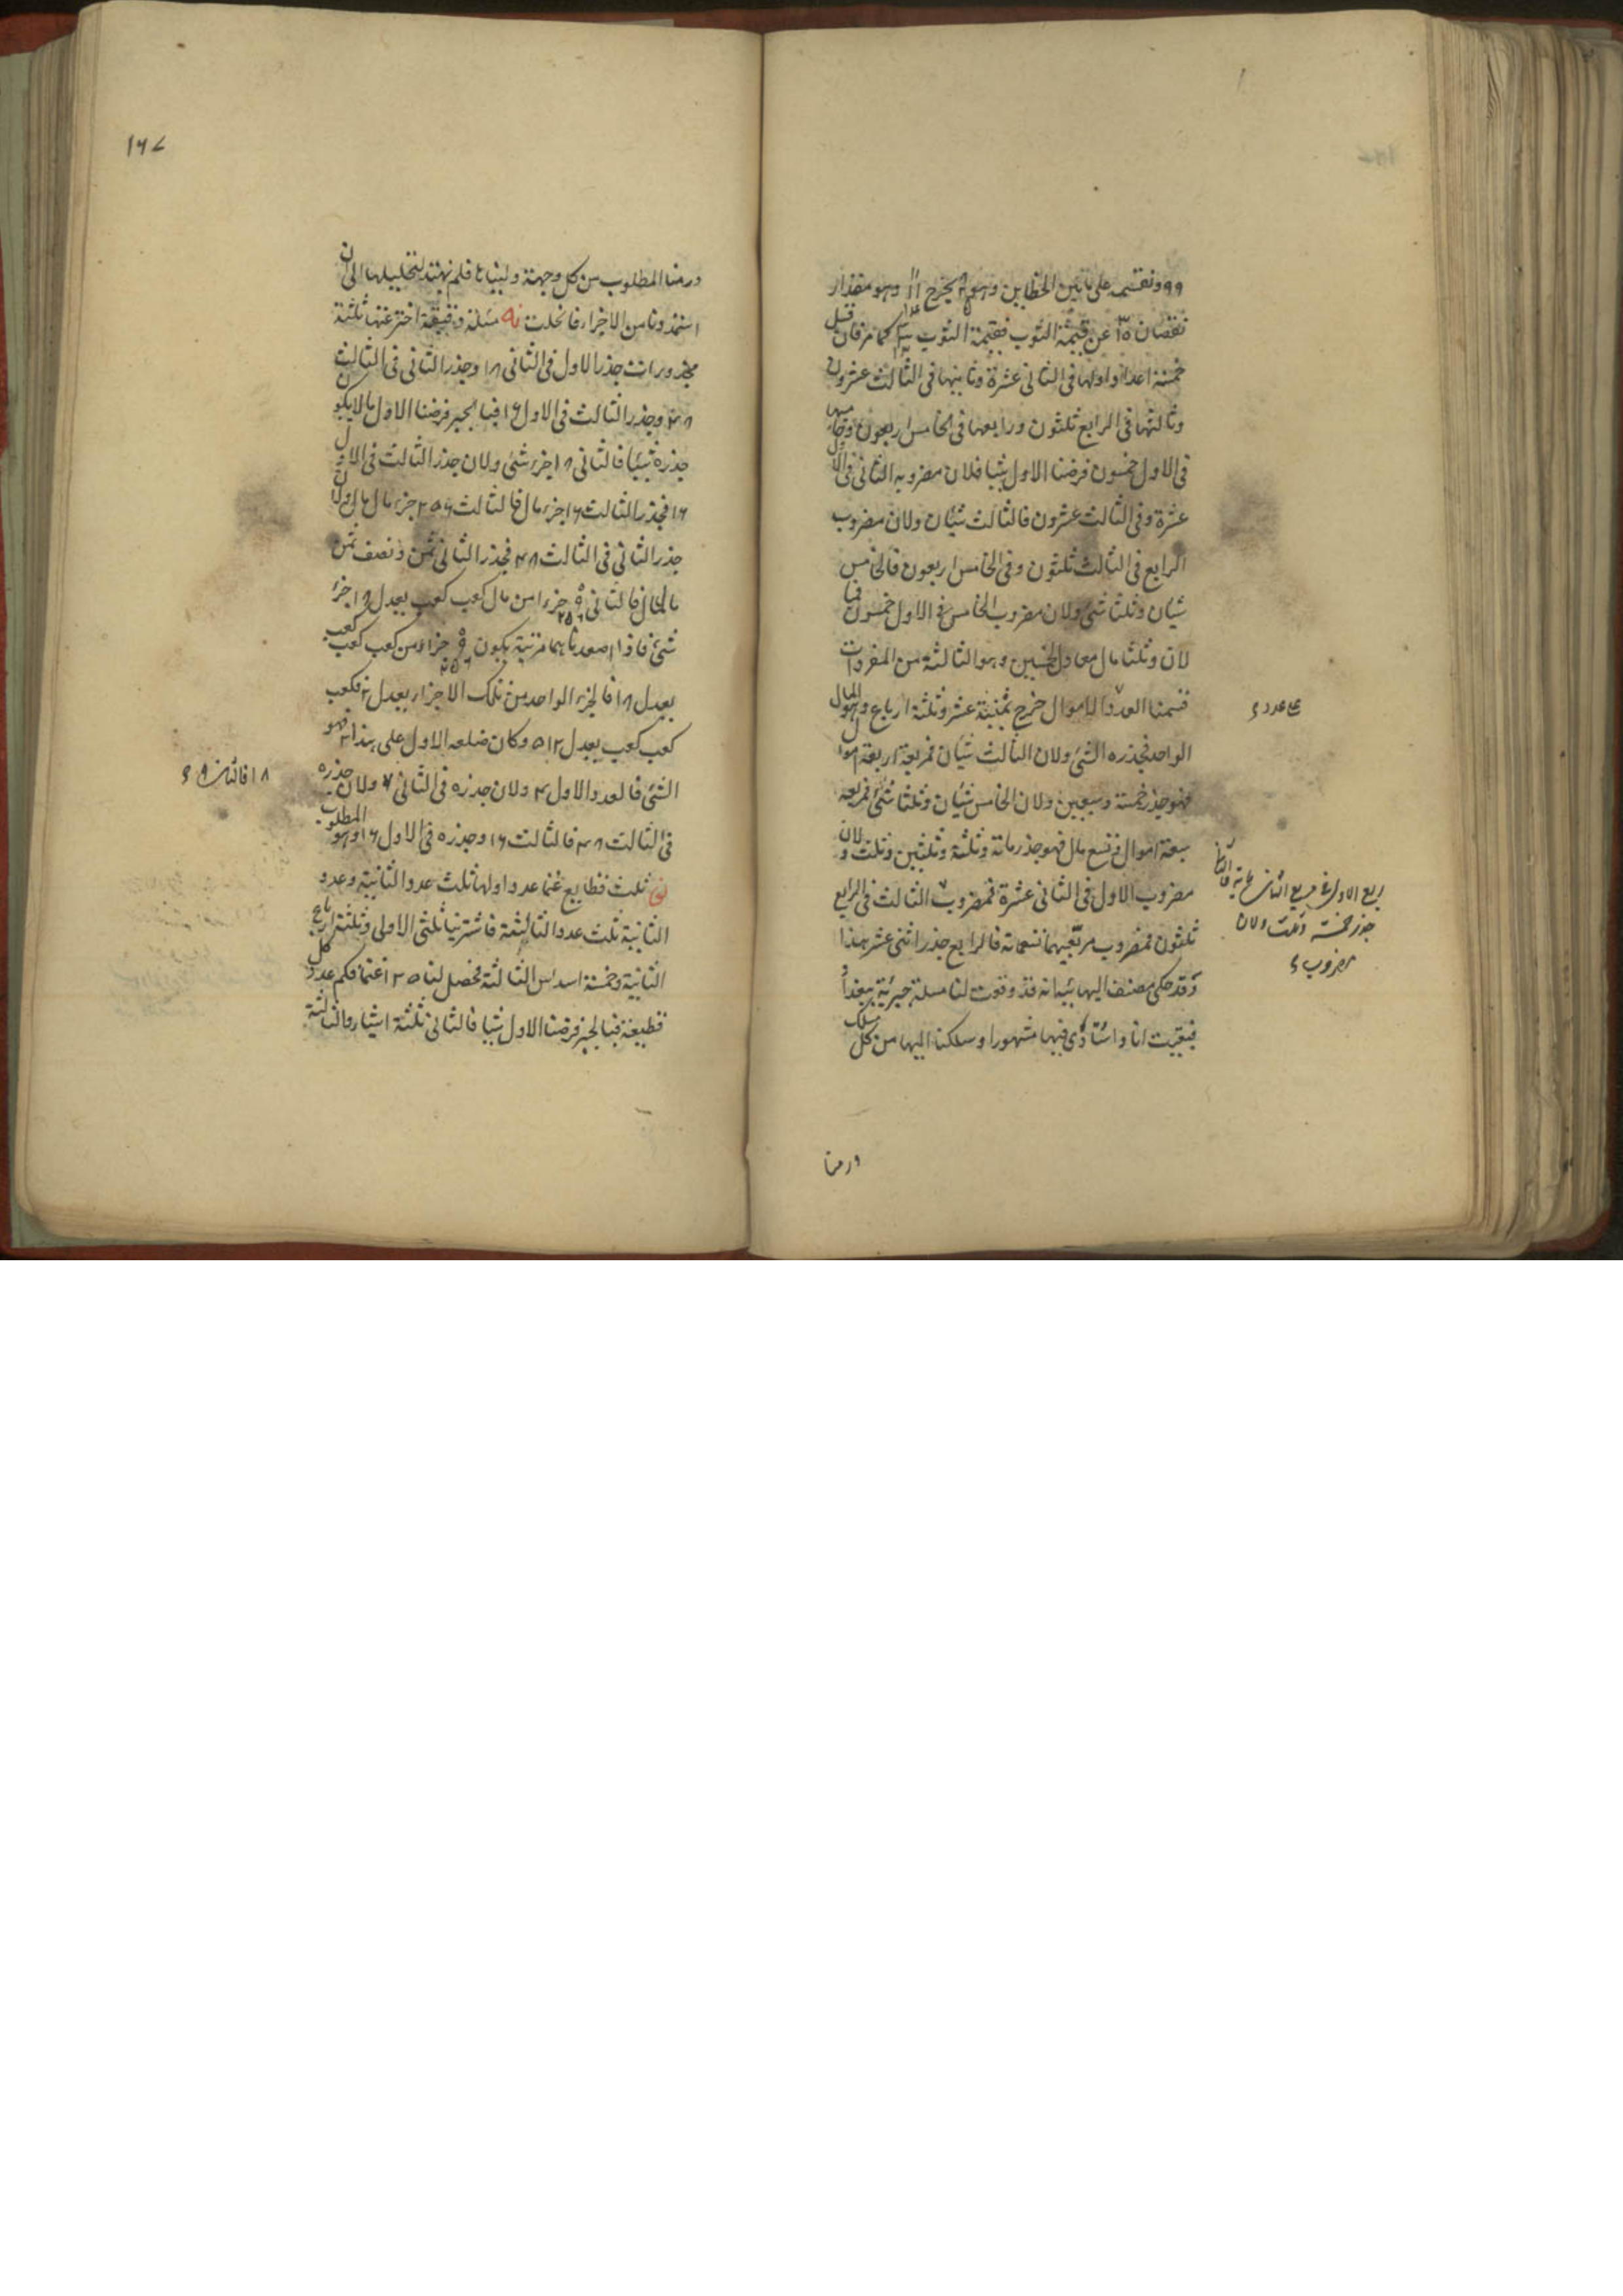 ٩٩ ونقسمه على مابين الخطاين وهو يخرج وهو مقدار
نقصان عن قيمة الثوب فقيمة الثوب كما مر فان قيل
خمسة اعداد اولها فى الثانى عشرة وثانيها فى الثالث عشرون
وثالثها فى الرابع ثلثون ورابعها فى الخامس اربعون وخامسها
فى الاول خمسون فرضنا الاول شيا فلان مضروبه الثانى فى الاول
عشرة وفى الثالث عشرون فالثالث شيئان ولان مضروب
الرابع فى الثالث ثلثون وفى الخامس اربعون فالخامس
شيئان وثلثا شئ ولان مضروب الخامس فى الاول خمسون فما
لان وثلثا مال معادل لخمسين وهو الثالثة من المفردات
قسمنا العدد الاموال خرج ثمنية عشر وثلثة ارباع وهو المال
الواحد فجذره الشئ ولان الثالث شيئان فمربعه اربعة اموال
فهو جذر خمسة وسبعين ولان الخامس شيئان وثلثا شئ فمربعه
سبعة اموال وتسع مال فهو جذر مائة وثلثة وثلثين وثلث ولان
مضروب الاول فى الثانى عشرة فمضروب الثالث فى الرابع
ثلثون فمضروب مربعيهما تسعمائة فالرابع جذر اثنى عشر هذا
وقد حكى مصنف اليهائية انه قد وقعت لنا مسئلة جبرية ببغداد
فبقيت انا واستاذى فيها شهورا وسلكنا اليها من كل مسلك
على عدد
جذر خمسة وثلث ولان
مضروب
ورمنا
١٦٧
ورمنا المطلوب من كل وجهة ولبنا بها فلم نهتد لتحليلها الى ان
استمدونا من الاجزاء فانحلت نه مسئلة دقيقة اخترعتها ثلثة
مجذورات جذر الاول فى الثانى ١٨ وجذر الثانى فى الثالث
٤٨ وجذر الثالث فى الاول ١٦ فبالجبر فرضنا الاول مالا يكون
جذره شيئا فالثانى ١٨ جزء شئ ولان جذر الثالث فى الاول
١٦ فجذر الثالث ١٦ جزء مال فالثالث ٢٥٦ جزء مال مال ولان
جذر الثانى فى الثالث ٤٨ فجذر الثانى ثمن ونصف ثمن
مال مال فالثانى ٩ جزءا من مال كعب كعب يعدل ١٨ جزء
شئ فاذا صعدناهما مرتبة يكون ٩ جزاء من كعب كعب كعب
يعدل ١٨ فالجزء الواحد من تلك الاجزاء يعدل ٢ فكعب
كعب كعب يعدل ٥١٢ وكان ضلعه الاول على هذا ٢ فهو
الشئ فالعدد الاول ٤ ولان جذره فى الثانى ولان جذره
فى الثالث ٤٨ فالثالث ١٦ وجذره فى الاول ١٦ وهو المطلوب
ثلث قطايع غنما عدد اولها ثلث عدد الثانية وعدد
الثانية ثلث عدد الثالثة فاشترينا ثلثى الاولى وثلثة ارباع
الثانية وخمسة اسداس الثالثة فحصل لنا ١٢٥ غنما فكم عدد كل
قطيعة فبالجبر فرضنا الاول شيا فالثانى ثلثة اشياء والثالثة
١٨ فالثانى ٩